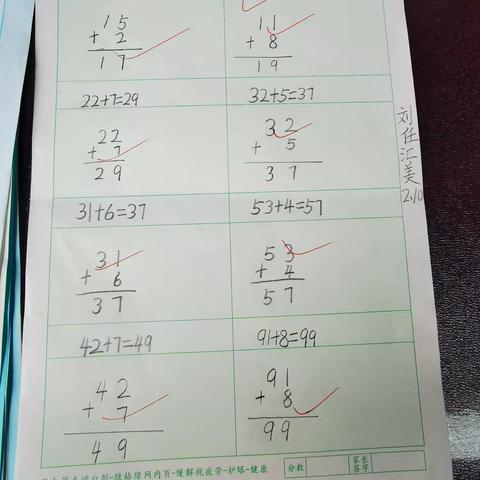 15
+ 2
17
11
+ 8
19
22+7=29
32+5=37
22
+ 7
29
32
+ 5
37
31+6=37
53+4=57
31
+ 6
37
53
+ 4
57
42+7=49
91+8=99
42
+ 7
49
91
+ 8
99
刘任汇美
绿格绿网内页-缓解视疲劳-护眼-健康
分数
家长
签字